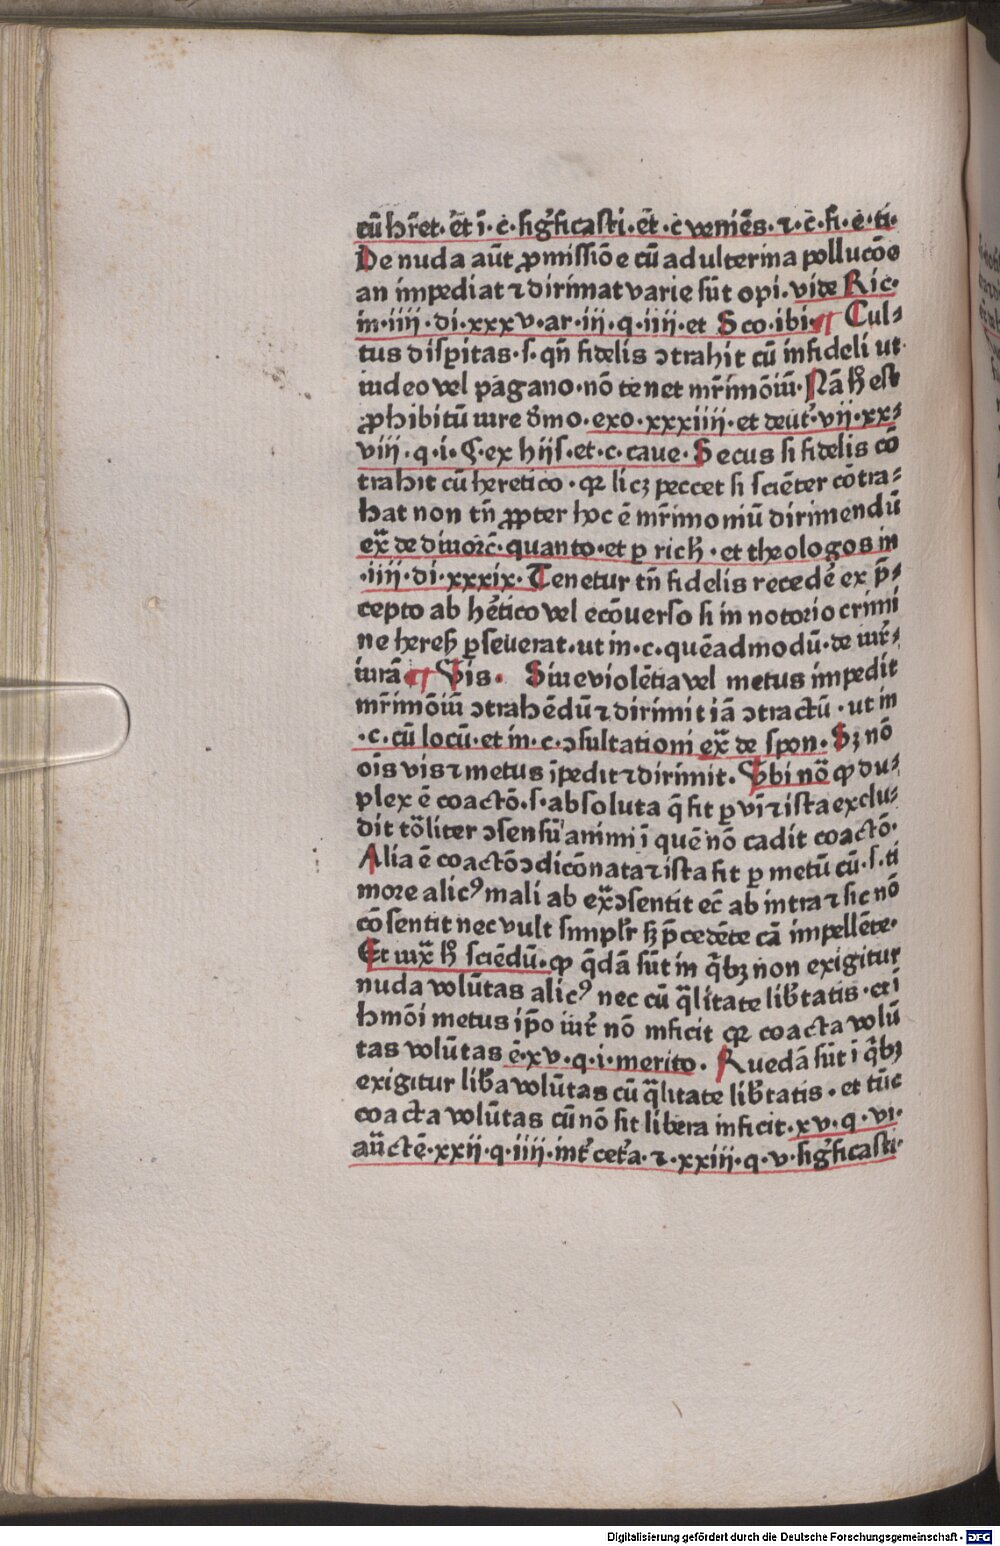 cū hr̄et· ēt ī· c̄· sigͥficasti· ēt· c̄ veniēs· ⁊· c̄· si· ē· ti·
De nuda aūt ꝓmissiōe cū adulterina pollucōe
an impediat ⁊ dirimat varie sūt opi· vide Ric·
in· iiii· di· xxxv· ar· iii· q· iiii· et Sco· ibi· ¶ Cul⸗
tus disꝑitas· s· qn̄ fidelis ꝯtrahit cū infideli ut
iudeo vel pagano· nō tenet mr̄imōiū· Nā hͦ est
ꝓhibitū iure dīno· exo· xxxiiii· et deut̄· vii· xx⸗
viii· q· i· C· ex hiis· et· c· caue· Secus si fidelis cō
trahit cū heretico· qꝛ licꝫ peccet si sciēter cōtra⸗
hat non tn̄ ꝓpter hoc ē mr̄imoniū dirimendū
ex̄ de diuorc̄· quanto· et ꝑ rich̄· et theologos in
·iiii· di· xxxix· Tenetur tn̄ fidelis recedē ex p̄⸗
cepto ab hētico vel ecōuerso si in notorio crimi
ne heresꝭ ꝑseuerat· ut in· c· quēadmodū· de iur̄⸗
iurā ¶ Vis· Siue violētia vel metus impedit
mr̄imōiū ꝯtrahēdū ⁊ dirimit iā ꝯtractū· ut in
·c· cū locū· et in· c· ꝯsultationi ex̄ de spon· Sꝫ nō
oīs vis ⁊ metus īpedit ⁊ dirimit· Vbi nō ꝙ du⸗
plex ē coactō· s· absoluta q̄ fit ꝑ vī ⁊ ista exclu⸗
dit tōliter ꝯsensū animi ī quē nō cadit coactō·
Alia ē coactō ꝯdicōnata ⁊ ista fit ꝑ metū cū· s· ti
more alicꝰ mali ab ex̄ ꝯsentit ec̄ ab intra ⁊ sic nō
cōsentit nec vult simplr̄ sꝫ p̄cedēte cā impellēte·
Et iux̄ hͦ sciēdū· ꝙ q̄dā sūt in q̄bꝫ non exigitur
nuda volūtas alicꝰ nec cū q̄litate libͬtatis· et ī
hmōi metus ip̄o iur̄ nō inficit qꝛ coacta volū
tas volūtas ē· xv· q· i· merito· Ruedā sūt ī q̄bꝫ
exigitur libͬa volūtas cū q̄litate libͬtatis· et tūc
coacta volūtas cū nō sit libera inficit· xv· q· vi·
auctē· xxii· q· iiii· int̄ cet̄a· ⁊· xxiii· q· v· sigͥficasti·
Digitalisierung gefördert durch die Deutsche Forschungsgemeinschaft - DFG